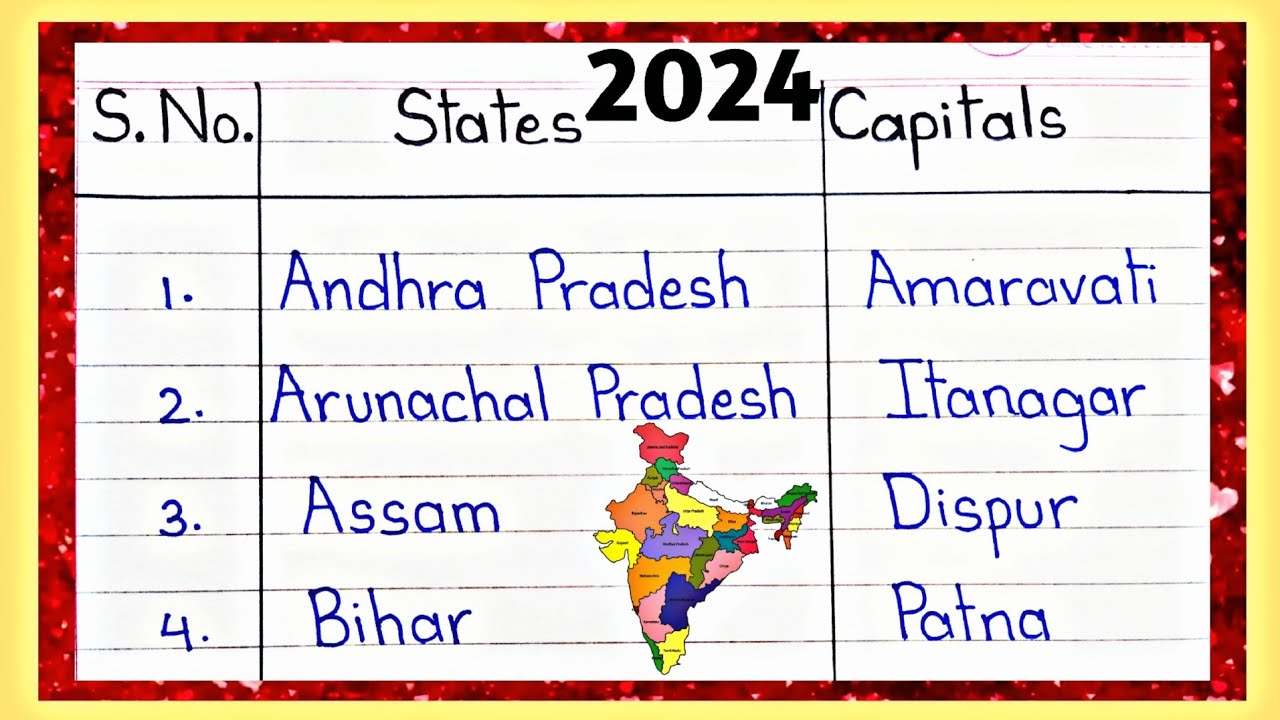 S. No. States 2024 Capitals
1. Andhra Pradesh Amaravati
2. Arunachal Pradesh Itanagar
3. Assam Dispur
4. Bihar Patna